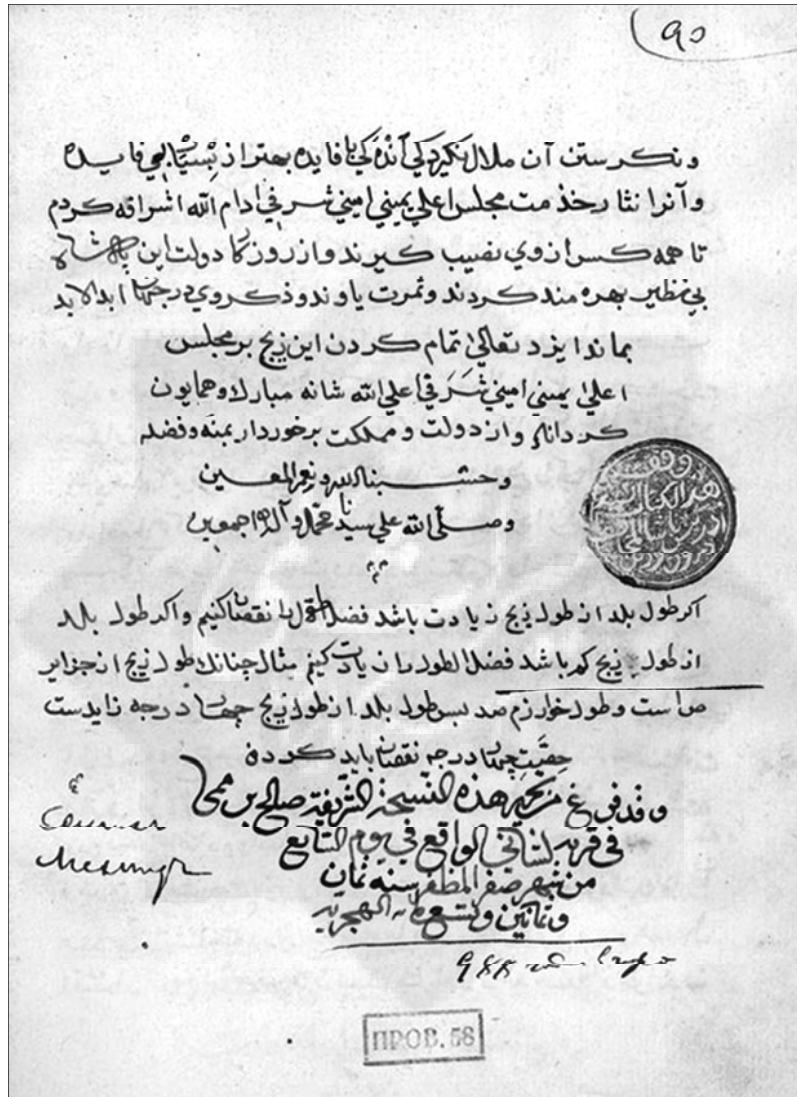 ٩٥
ونكرستن آن ملال نكيرد كي آندكي با فايده بهتر از بسيار بي فايده
وآنرا نثار خدمت مجلس اعلي يميني اميني شرفي ادام الله اشراقه كردم
تا همه كس از وي نصيب كيرند و از روزكار دولت اين
بي نظير بهره مند كردند وثمرت ياوند وذكر وي در جهان ابد الابد
بماند وايزد تعالي تمام كردن اين زيج بر مجلس
اعلي يميني اميني شرفي اعلي الله شانه مبارك وهمايون
كرداناد و از دولت و مملكت برخوردار بمنه وفضله
وحسبنا الله ونعم المعين
وصلى الله علي سيدنا محمد وآله اجمعين
اكر طول بلد از طول زيج زيادت باشد فضل الطول را نقصان كنيم واكر طول بلد
از طول زيج كم باشد فضل الطول را زيادت كنيم مثال چنانك طول زيج از جزاير
ص است وطول خوارزم صد بس طول بلد از طول زيج چهار درجه زايدست
چهار درجه نقصان بايد كرده
وقد فرغ من تحرير هذه النسخة الشريفة صالح بن
في قرية الواقع في يوم التاسع
من شهر صفر المظفر سنة ثمان
وثمانين وتسعمائة الهجرية
ПРОВ. 58